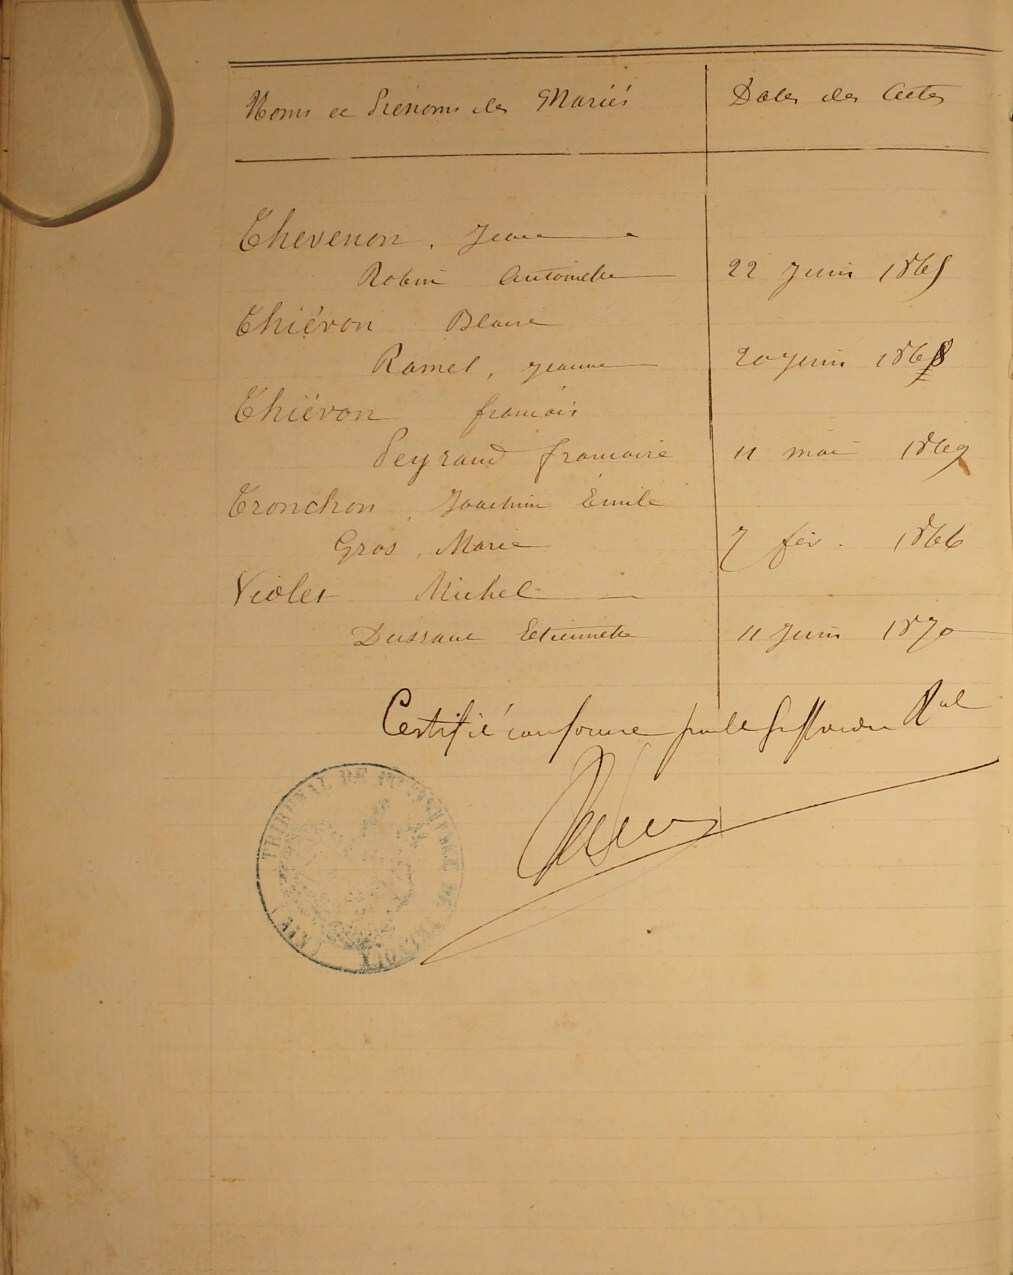 Noms et Prénoms des Mariés Dates des Actes
Thevenon, Jean
Robin Antoinette 22 Juin 1865
Thiévon Blaise
Ramel, Jeanne 20 Juin 1868
Thiévon françois
Peyraud françoise 11 mai 1869
Tronchon, Joachim Émile
Gros, Marie 7 fév. 1866
Violet Michel
Dussauc Etiennette 11 Juin 1870
Certifié conforme par le Greffier du
TRIBUNAL DE 1ère INSTANCE DE